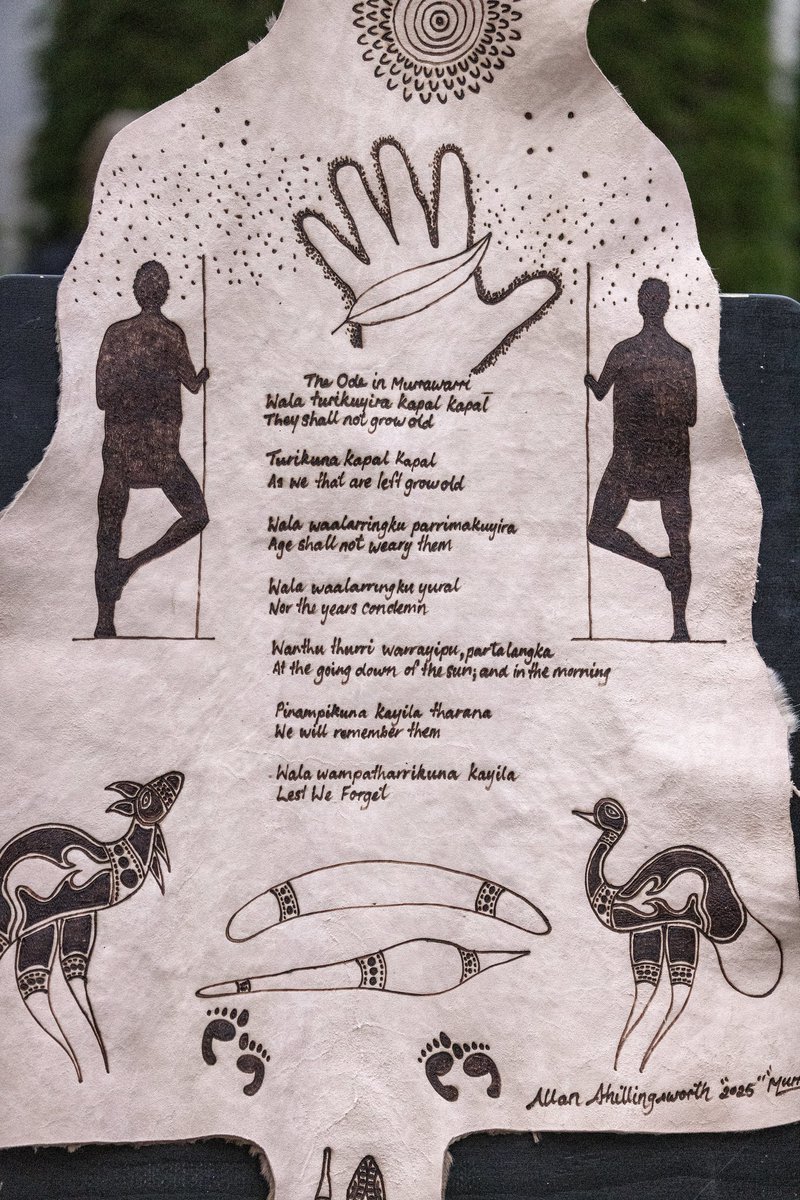 The Ode in Murrawarri
Wala turikuyira kapal kapal
They shall not grow old
Turikuna kapal kapal
As we that are left grow old
Wala waalarringku parrimakuyira
Age shall not weary them
Wala waalarringku yural
Nor the years condemn
Wanthu thurri warrayipu, partalangka
At the going down of the sun; and in the morning
Pirampikuna kayila tharana
We will remember them
Wala wampatharrikuna kayila
Lest We Forget
Allan Shillingsworth "2025"